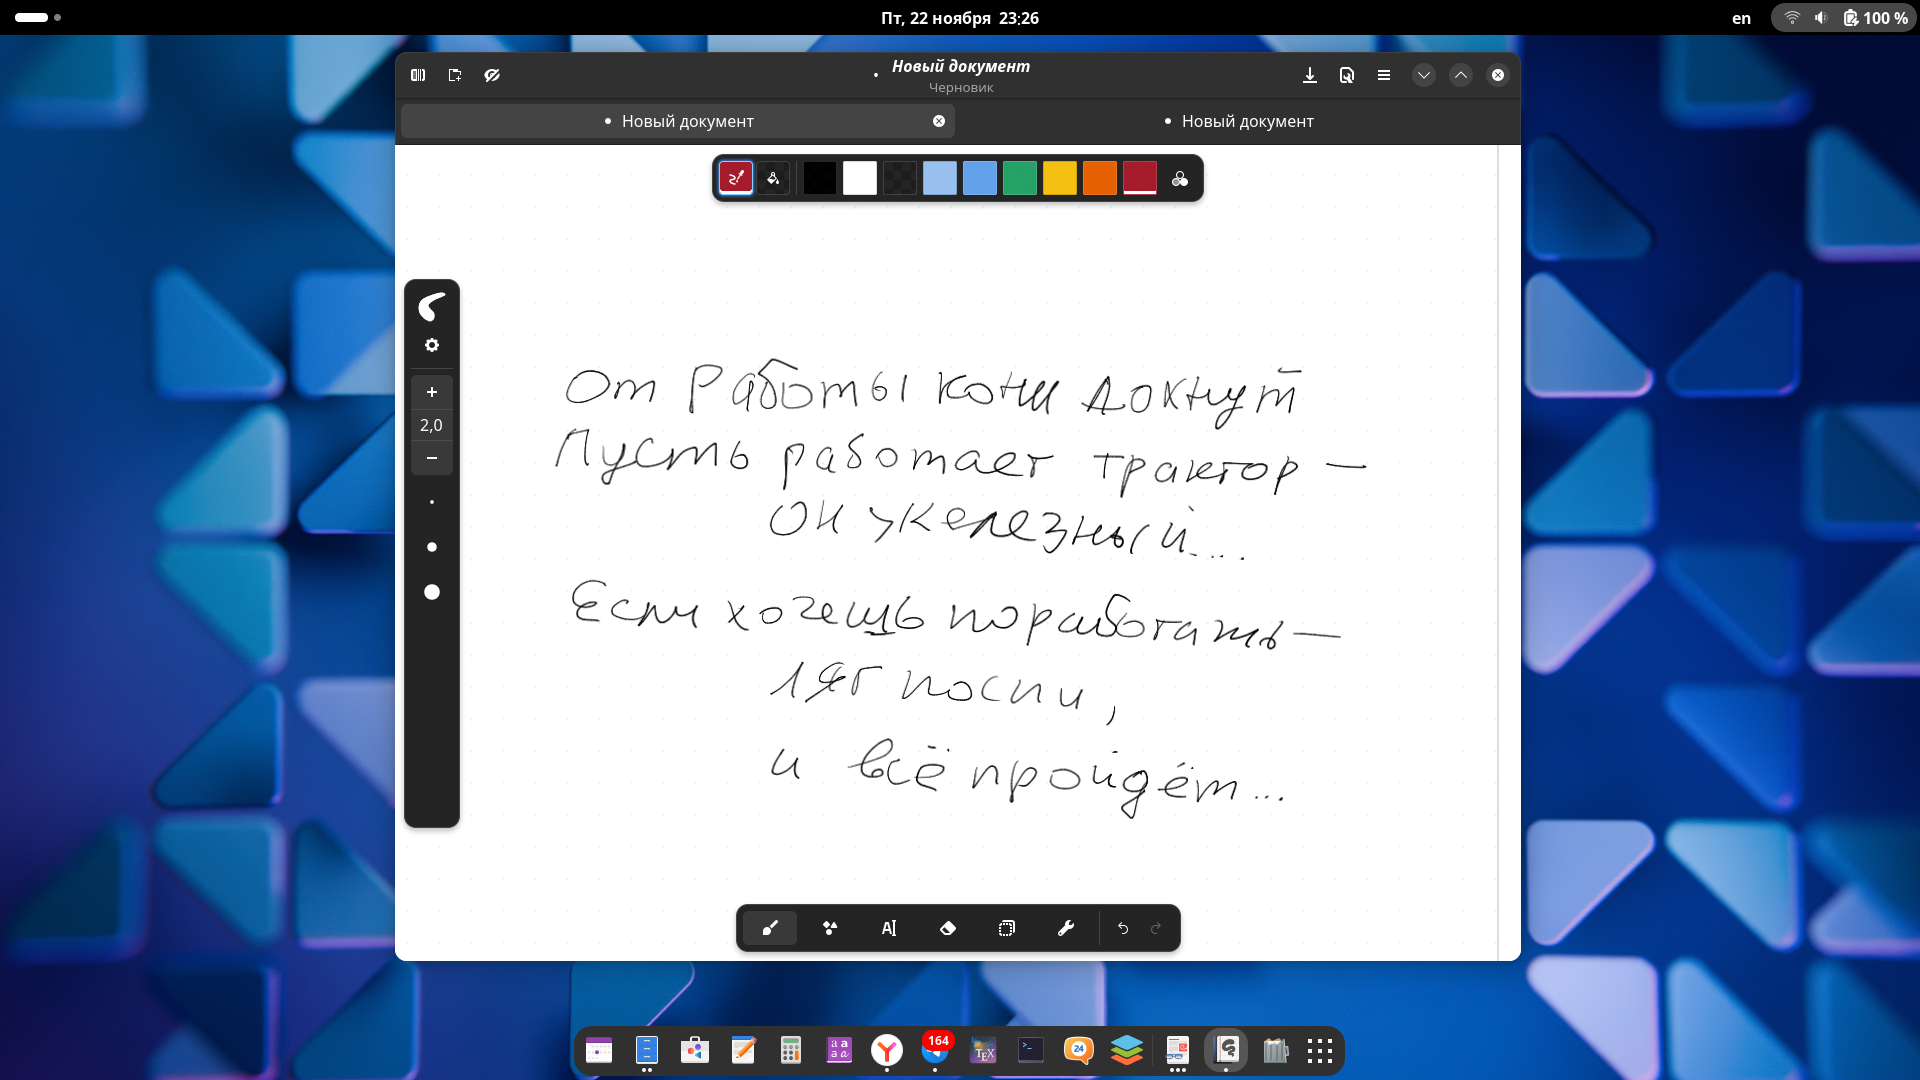 Пт, 22 ноября 23:26
en
100 %
Новый документ
Черновик
Новый документ
Новый документ
2,0
От Работы кони дохнут
Пусть работает трактор —
он железный...
Если хочешь поработать —
ляг поспи,
и всё пройдёт...
AI
a a
a a
164
TEX
>_
24